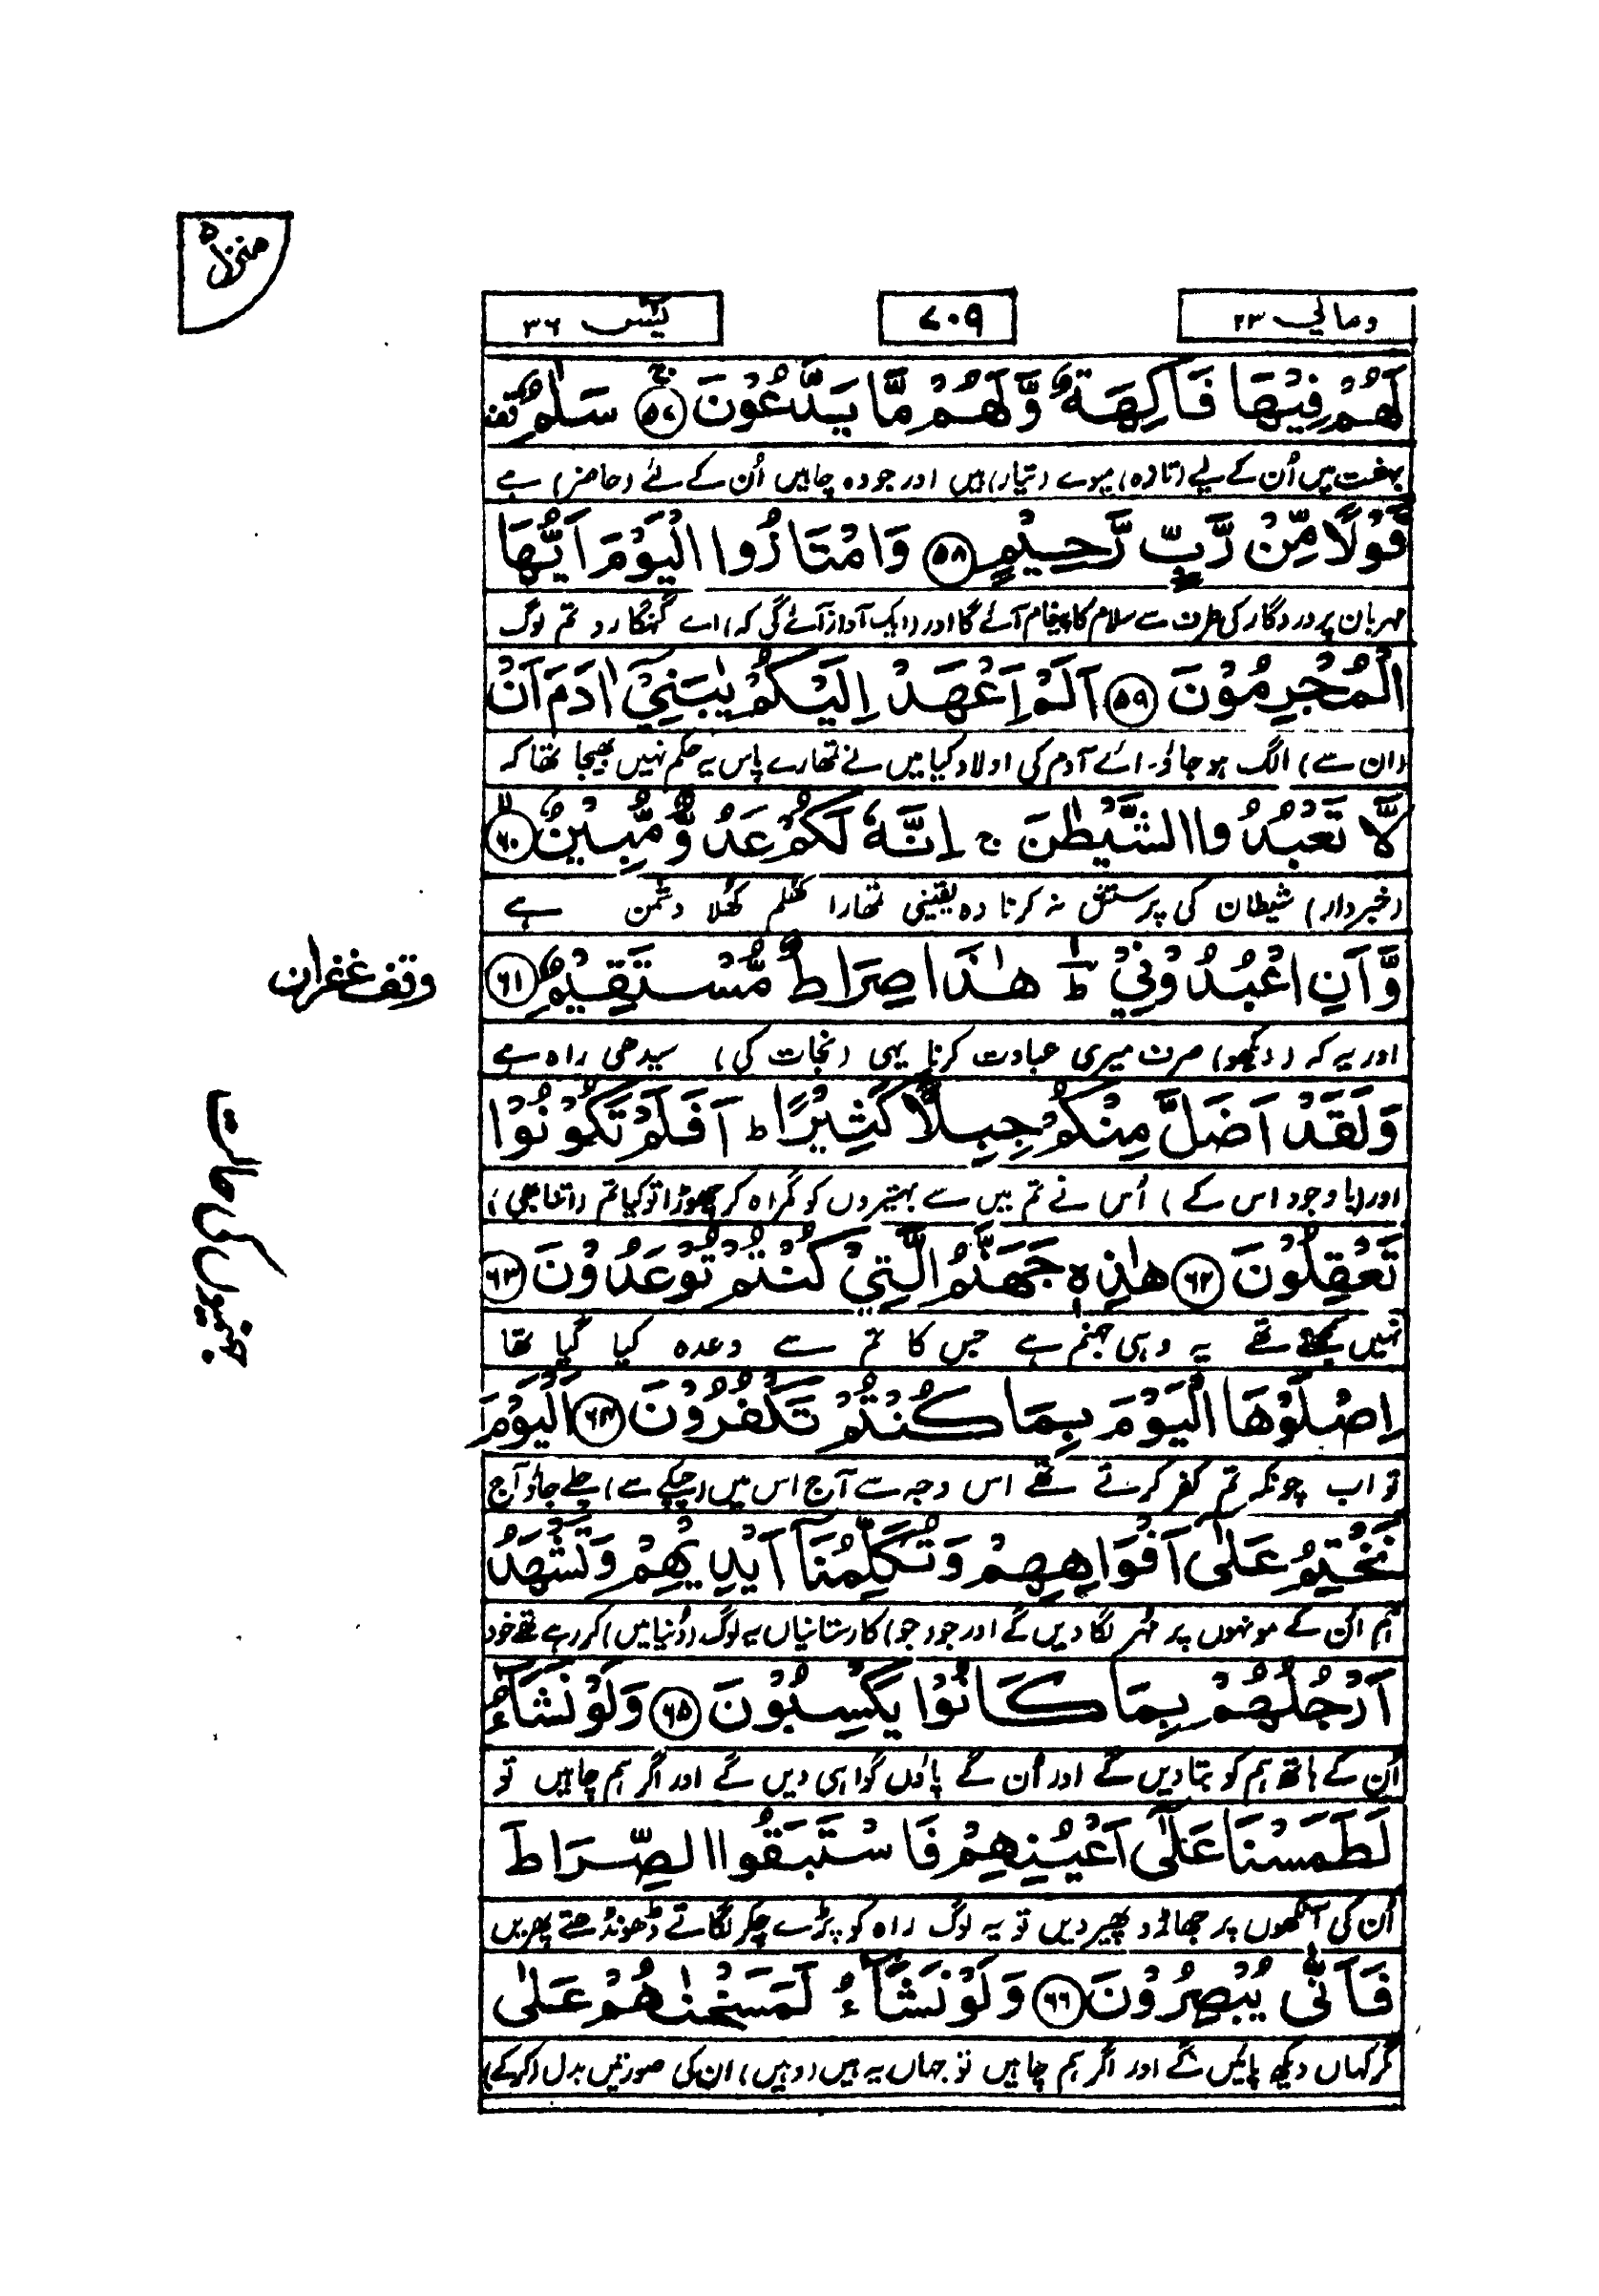 منزل ۵
ومالی ۲۳
۷۰۹
یٰسٓ ۳۶
لَهُمْ فِيْهَا فَاكِهَةٌ وَّلَهُمْ مَّا يَدَّعُوْنَ ۝۵۷ ج سَلٰمٌ قف
بہشت میں اُن کے لیے (تازہ) میوے (تیار) ہیں اور جو وہ چاہیں اُن کے لئے (حاضر) ہے
قَوْلًا مِّنْ رَّبٍّ رَّحِيْمٍ ۝۵۸ وَامْتَازُوا الْيَوْمَ اَيُّهَا
مہربان پروردگار کی طرف سے سلام کا پیغام آئے گا اور (ایک آواز آئے گی کہ) اے گنہگارو تم لوگ
الْمُجْرِمُوْنَ ۝۵۹ اَلَمْ اَعْهَدْ اِلَيْكُمْ يٰبَنِيْٓ اٰدَمَ اَنْ
(ان سے) الگ ہو جاؤ۔ اے آدم کی اولاد کیا میں نے تمھارے پاس یہ حکم نہیں بھیجا تھا کہ
لَّا تَعْبُدُوا الشَّيْطٰنَ ج اِنَّهٗ لَكُمْ عَدُوٌّ مُّبِيْنٌ ۝۶۰ لا
(خبردار) شیطان کی پرستش نہ کرنا وہ یقینی تمھارا کھلم کھلا دشمن ہے
وَّاَنِ اعْبُدُوْنِيْ ؕ هٰذَا صِرَاطٌ مُّسْتَقِيْمٌ ۝۶۱
وقف غفران
اور یہ کہ (دیکھو) صرف میری عبادت کرنا یہی (نجات کی) سیدھی راہ ہے
وَلَقَدْ اَضَلَّ مِنْكُمْ جِبِلًّا كَثِيْرًا ط اَفَلَمْ تَكُوْنُوْا
اور (باوجود اس کے) اُس نے تم میں سے بہتیروں کو گمراہ کر چھوڑا تو کیا تم (اتنا بھی)
جہنمیوں کی حالت
تَعْقِلُوْنَ ۝۶۲ هٰذِهٖ جَهَنَّمُ الَّتِيْ كُنْتُمْ تُوْعَدُوْنَ ۝۶۳
نہیں سمجھتے تھے یہ وہی جہنم ہے جس کا تم سے وعدہ کیا گیا تھا
اِصْلَوْهَا الْيَوْمَ بِمَا كُنْتُمْ تَكْفُرُوْنَ ۝۶۴ اَلْيَوْمَ
تو اب چونکہ تم کفر کرتے تھے اس وجہ سے آج اس میں (چپکے سے) چلے جاؤ آج
نَخْتِمُ عَلٰٓى اَفْوَاهِهِمْ وَتُكَلِّمُنَآ اَيْدِيْهِمْ وَتَشْهَدُ
ہم اُن کے مونہوں پر مُہر لگا دیں گے اور جو (جو) کارستانیاں یہ لوگ (دُنیا میں) کر رہے تھے خود
اَرْجُلُهُمْ بِمَا كَانُوْا يَكْسِبُوْنَ ۝۶۵ وَلَوْ نَشَآءُ
اُن کے ہاتھ ہم کو بتا دیں گے اور اُن کے پاؤں گواہی دیں گے اور اگر ہم چاہیں تو
لَطَمَسْنَا عَلٰٓى اَعْيُنِهِمْ فَاسْتَبَقُوا الصِّرَاطَ
اُن کی آنکھوں پر جھاڑو پھیر دیں تو یہ لوگ راہ کو پڑے چکر لگاتے ڈھونڈھتے پھریں
فَاَنّٰى يُبْصِرُوْنَ ۝۶۶ وَلَوْ نَشَآءُ لَمَسَخْنٰهُمْ عَلٰى
مگر کہاں دیکھ پائیں گے اور اگر ہم چاہیں تو جہاں یہ ہیں (وہیں) ان کی صورتیں بدل (کر کے)